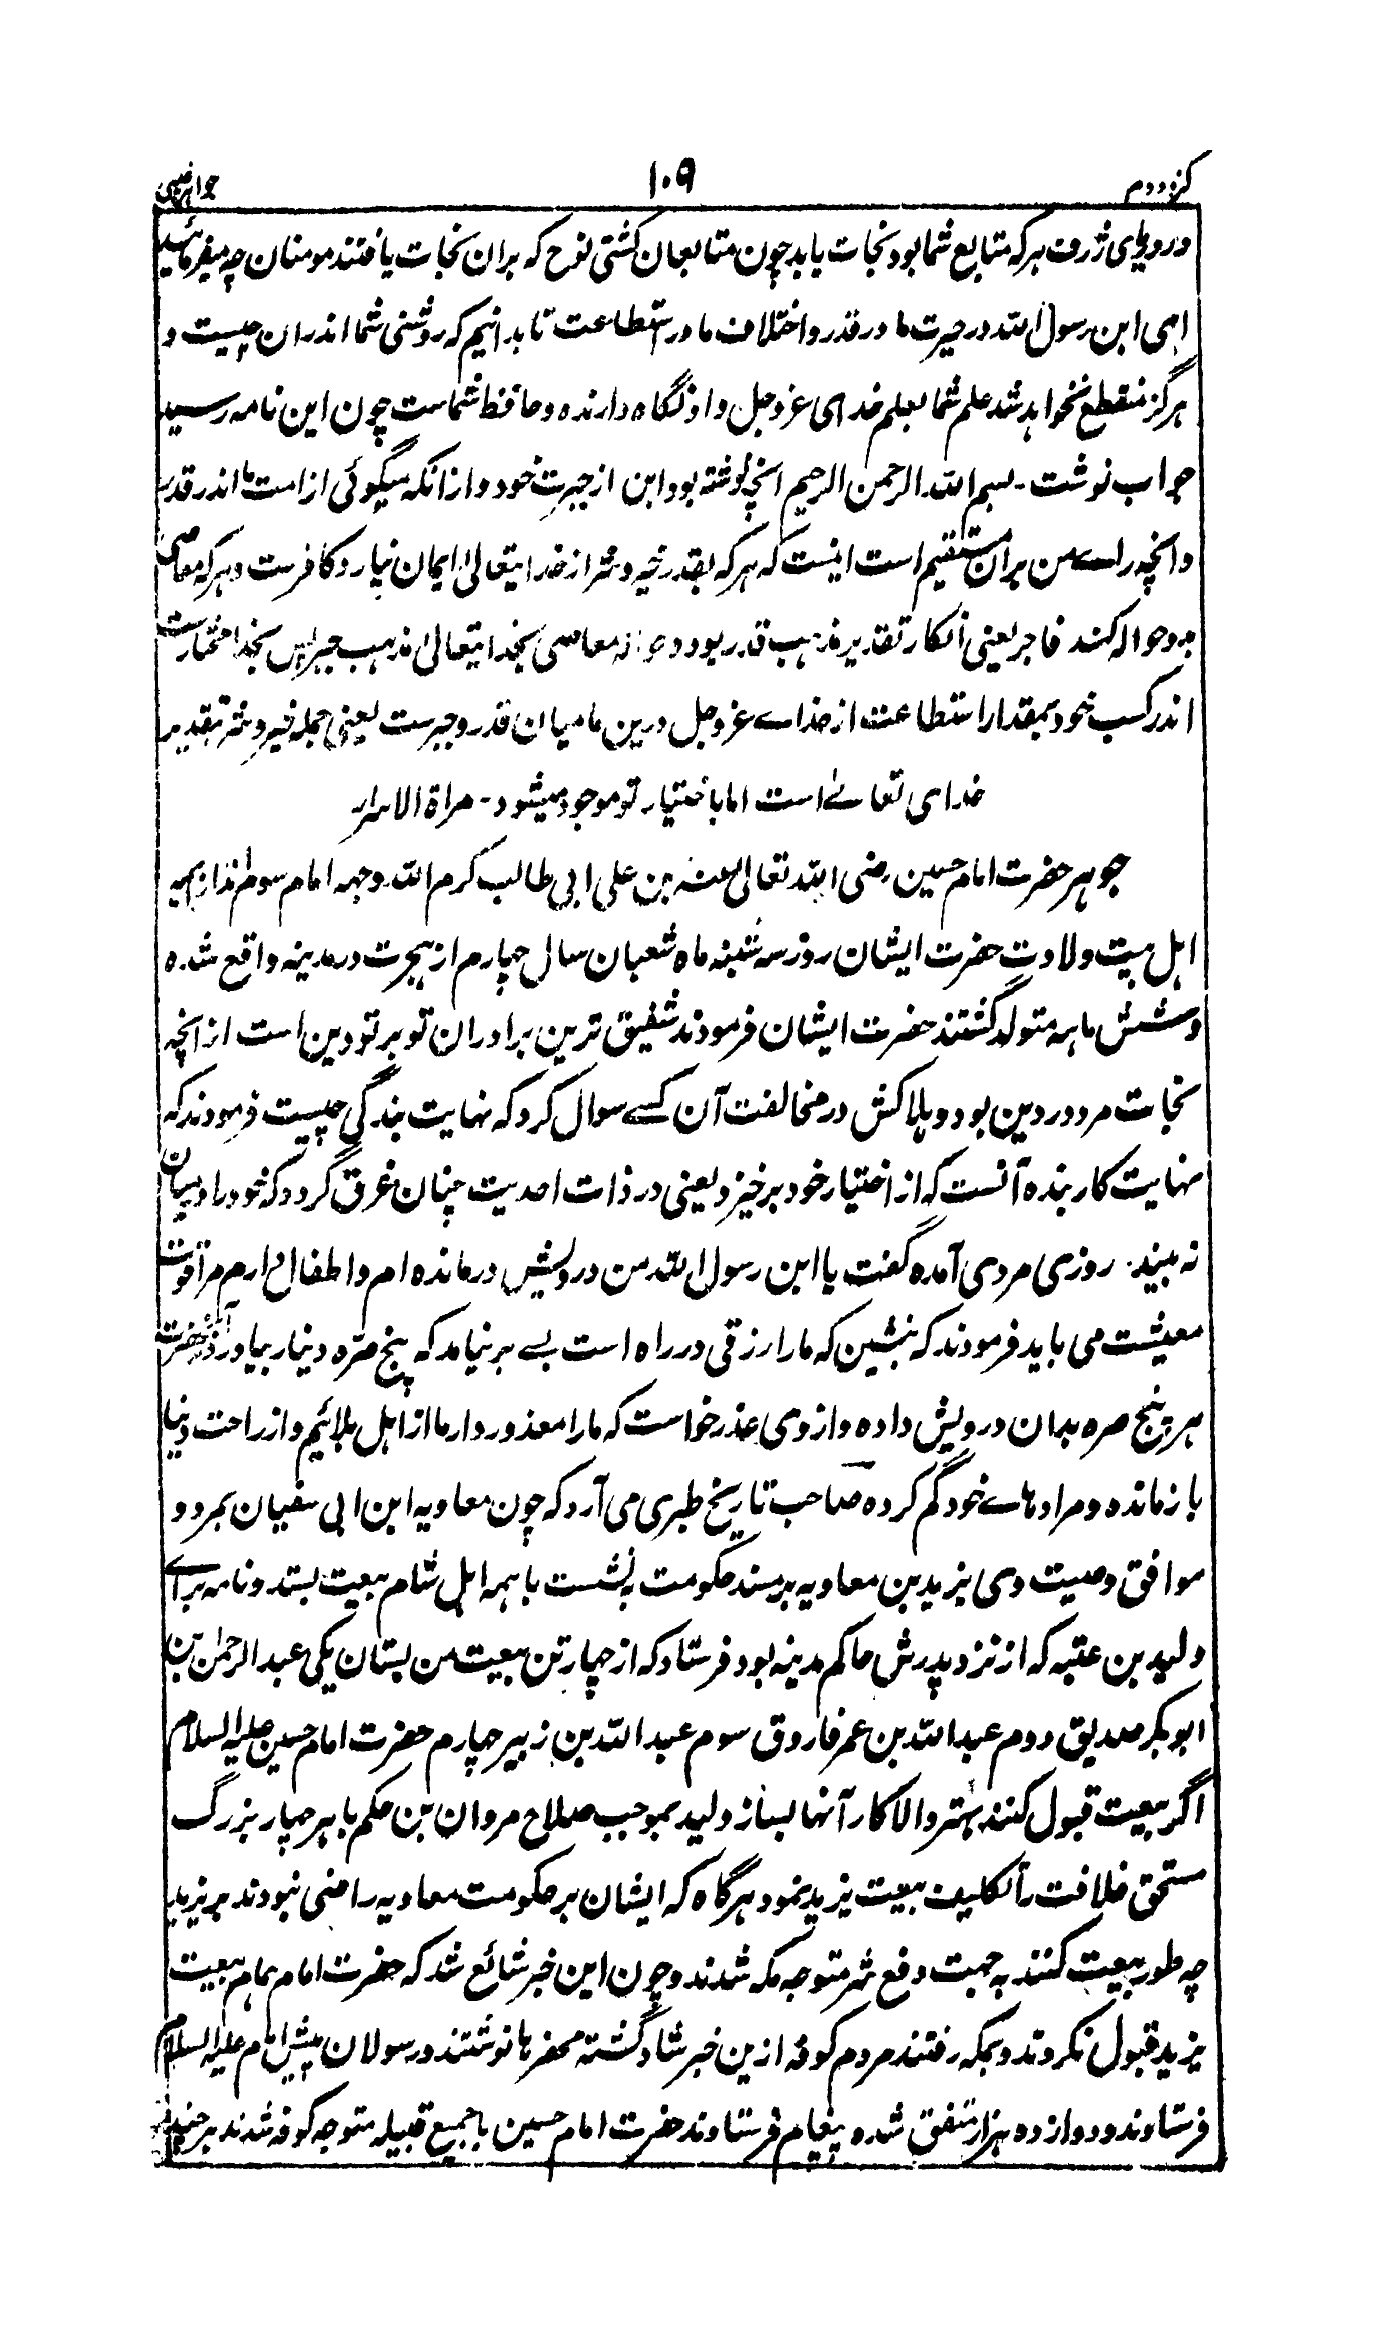 کنز دوم ۱۰۹ جواهر غیبی
در دریای ژرف هر که متابع شما بود نجات یابد چون متابعان کشتی نوح که بران نجات یافتند مومنان چه میفرمائید
ای ابن رسول الله در حیرت ما در قدر و اختلاف ما در استطاعت تا بدانیم که روشنی شما اندران چیست و
هرگز منقطع نخواهد شد علم شما بعلم خدای عز و جل و او نگاه دارنده و حافظ شماست چون این نامه رسید
جواب نوشت - بسم الله الرحمن الرحیم انچه نوشته بود ابن از حیرت خود و از انکه میگوئی از امت ما اندر قدر
و انچه راے من بران مستقیم است اینست که هر که بقدر خیر و شر از خدایتعالیٰ ایمان نیارد کافرست و هر که معاصی
بدو حواله کند فاجر یعنی انکار تقدیر مذهب قدر بود و حواله معاصی بخدایتعالیٰ مذهب جبر پس بنده مختارست
اندر کسب خود بمقدار استطاعت از خداے عز و جل و دین ما میان قدر و جبرست یعنی جمله خیر و شر بتقدیر
خدای تعالےٰ است اما باختیار تو موجود میشود - مراة الاسرار
جوهر حضرت امام حسین رضی الله تعالیٰ عنه بن علی ابی طالب کرم الله وجهه امام سوم اند از ایمه
اهل بیت ولادت حضرت ایشان روز سه شنبه ماه شعبان سال چهارم از هجرت در مدینه واقع شده
و شش ماهه متولد گشتند حضرت ایشان فرمودند شفیق ترین برادران تو بر تو دین است از انچه
نجات مرد در دین بود و هلاکش در مخالفت آن کسے سوال کرد که نهایت بندگی چیست فرمودند که
نهایت کار بنده آنست که از اختیار خود برخیزد یعنی در ذات احدیت چنان غرق گردد که خود را درمیان
نه بیند. روزی مردی آمده گفت یا ابن رسول الله من درویش درمانده ام و اطفال دارم مرا قوت
معیشت می باید فرمودند که بنشین که ما را رزقی در راه است بسے برنیامد که پنج صره دینار بیاوردند حضرت
هر پنج صره بدان درویش داده و از وی عذر خواست که ما را معذور دار ما از اهل بلائیم و از راحت دنیا
بازمانده و مرادهاے خود گم کرده صاحب تاریخ طبری می آرد که چون معاویه ابن ابی سفیان بمرد و
موافق وصیت وی یزید بن معاویه بر مسند حکومت بنشست با همه اهل شام بیعت بستد و نامه براے
ولید بن عتبه که از نزد پدرش حاکم مدینه بود فرستاد که از چهار تن بیعت من بستان یکی عبد الرحمٰن بن
ابوبکر صدیق دوم عبد الله بن عمر فاروق سوم عبد الله بن زبیر چهارم حضرت امام حسین علیه السلام
اگر بیعت قبول کنند بهتر والا کار آنها بساز ولید بموجب صلاح مروان بن حکم با هر چهار بزرگ
مستحق خلافت را تکلیف بیعت یزید نمود هرگاه که ایشان بر حکومت معاویه راضی نبودند بر یزید
چه طور بیعت کنند به جهت دفع شر متوجه مکه شدند و چون این خبر شائع شد که حضرت امام همام بیعت
یزید قبول نکردند و بمکه رفتند مردم کوفه ازین خبر شاد گشته محضرها نوشتند و رسولان پیش امام علیه السلام
فرستادند و دوازده هزار متفق شده پیغام فرستادند حضرت امام حسین با جمیع قبیله متوجه کوفه شدند هر چند